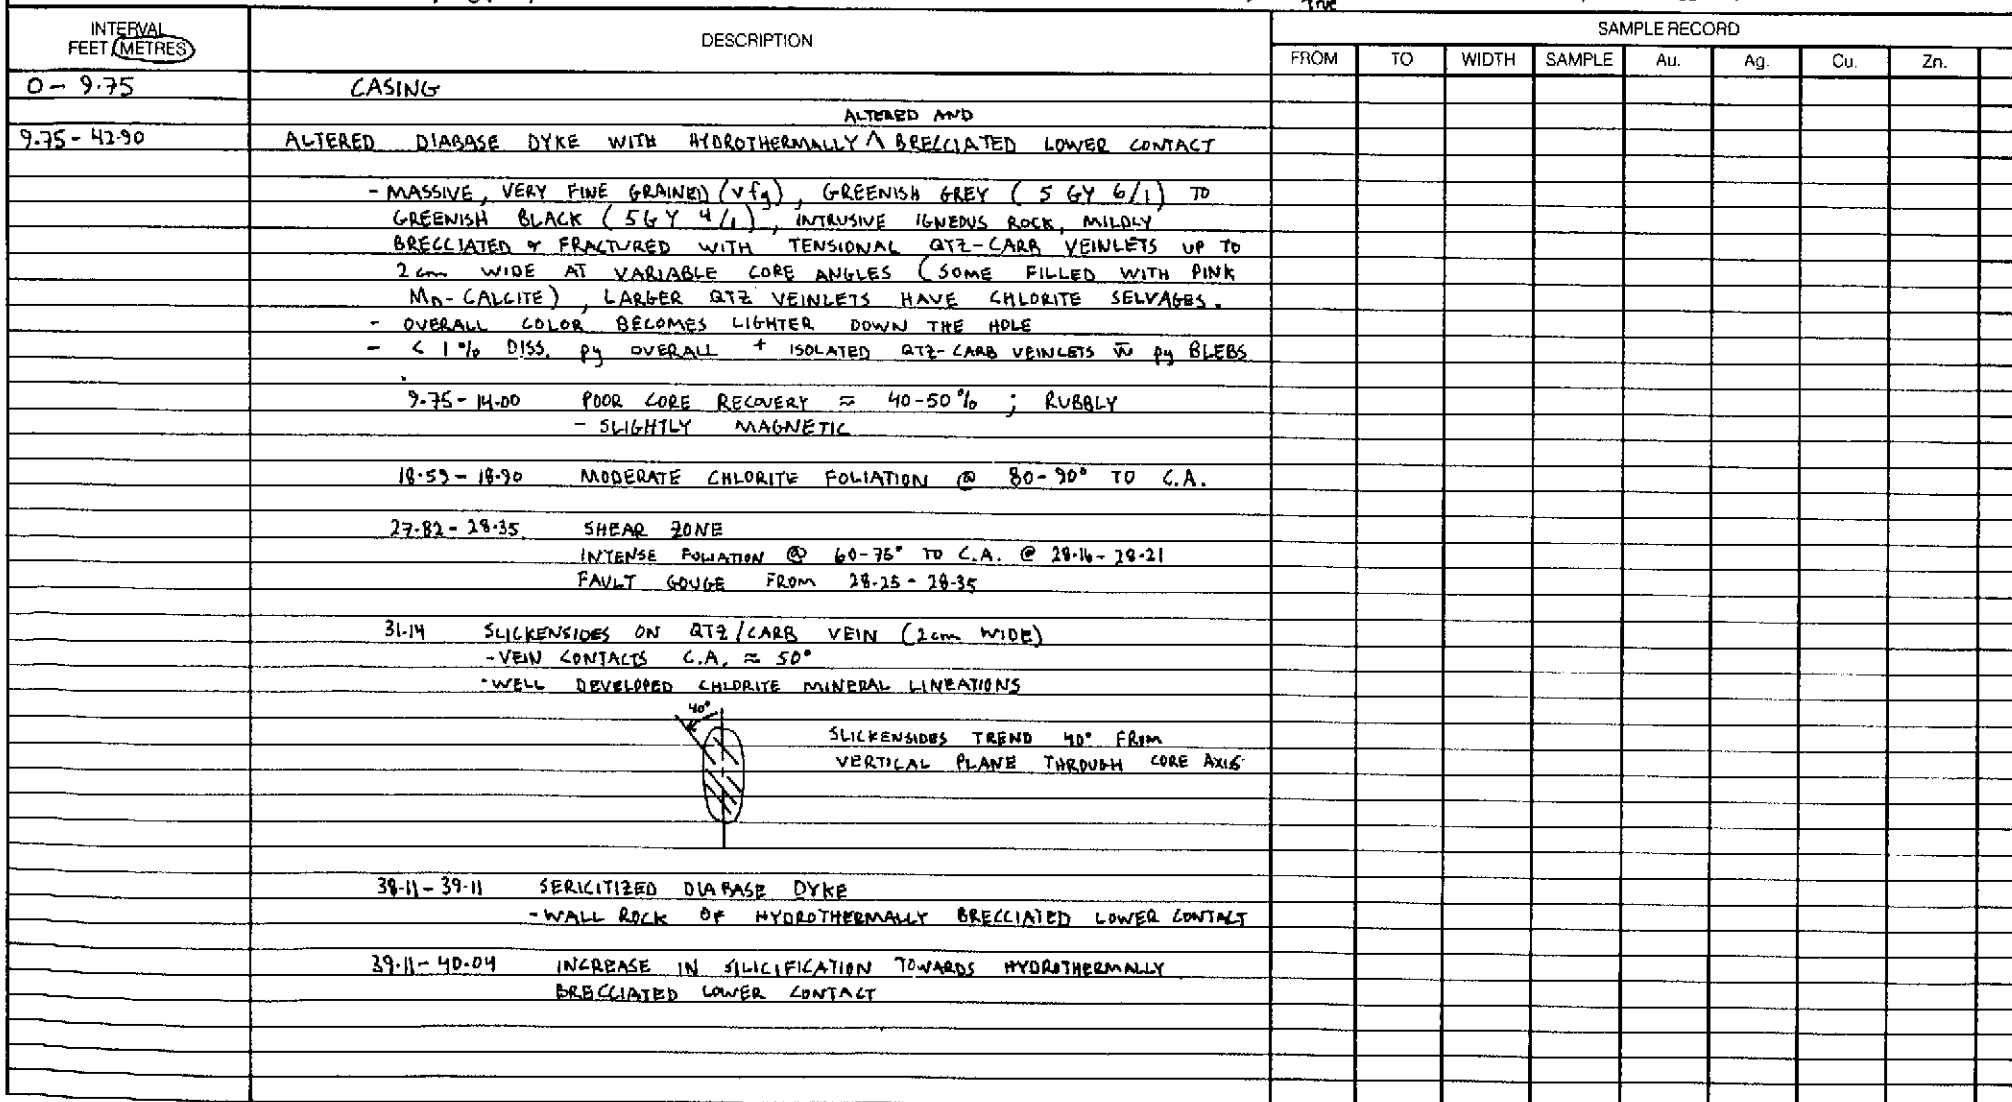 True
INTERVAL
FEET (METRES)
DESCRIPTION
SAMPLE RECORD
FROM TO WIDTH SAMPLE Au. Ag. Cu. Zn.
0 - 9.75 CASING
ALTERED AND
9.75 - 42.90 ALTERED DIABASE DYKE WITH HYDROTHERMALLY ∧ BRECCIATED LOWER CONTACT
- MASSIVE, VERY FINE GRAINED (vfg), GREENISH GREY (5 GY 6/1) TO
GREENISH BLACK (5GY 4/1), INTRUSIVE IGNEOUS ROCK, MILDLY
BRECCIATED & FRACTURED WITH TENSIONAL QTZ-CARB VEINLETS UP TO
2 cm WIDE AT VARIABLE CORE ANGLES (SOME FILLED WITH PINK
Mn-CALCITE), LARGER QTZ VEINLETS HAVE CHLORITE SELVAGES.
- OVERALL COLOR BECOMES LIGHTER DOWN THE HOLE
- < 1% DISS. py OVERALL + ISOLATED QTZ-CARB VEINLETS w̅ py BLEBS
9.75 - 14.00 POOR CORE RECOVERY ≈ 40-50% ; RUBBLY
- SLIGHTLY MAGNETIC
18.59 - 18.90 MODERATE CHLORITE FOLIATION @ 80-90° TO C.A.
27.82 - 28.35 SHEAR ZONE
INTENSE FOLIATION @ 60-75° TO C.A. @ 28.16 - 28.21
FAULT GOUGE FROM 28.25 - 28.35
31.14 SLICKENSIDES ON QTZ/CARB VEIN (2cm WIDE)
- VEIN CONTACTS C.A. ≈ 50°
- WELL DEVELOPED CHLORITE MINERAL LINEATIONS
40°
SLICKENSIDES TREND 40° FROM
VERTICAL PLANE THROUGH CORE AXIS
38.11 - 39.11 SERICITIZED DIABASE DYKE
- WALL ROCK OF HYDROTHERMALLY BRECCIATED LOWER CONTACT
39.11 - 40.04 INCREASE IN SILICIFICATION TOWARDS HYDROTHERMALLY
BRECCIATED LOWER CONTACT